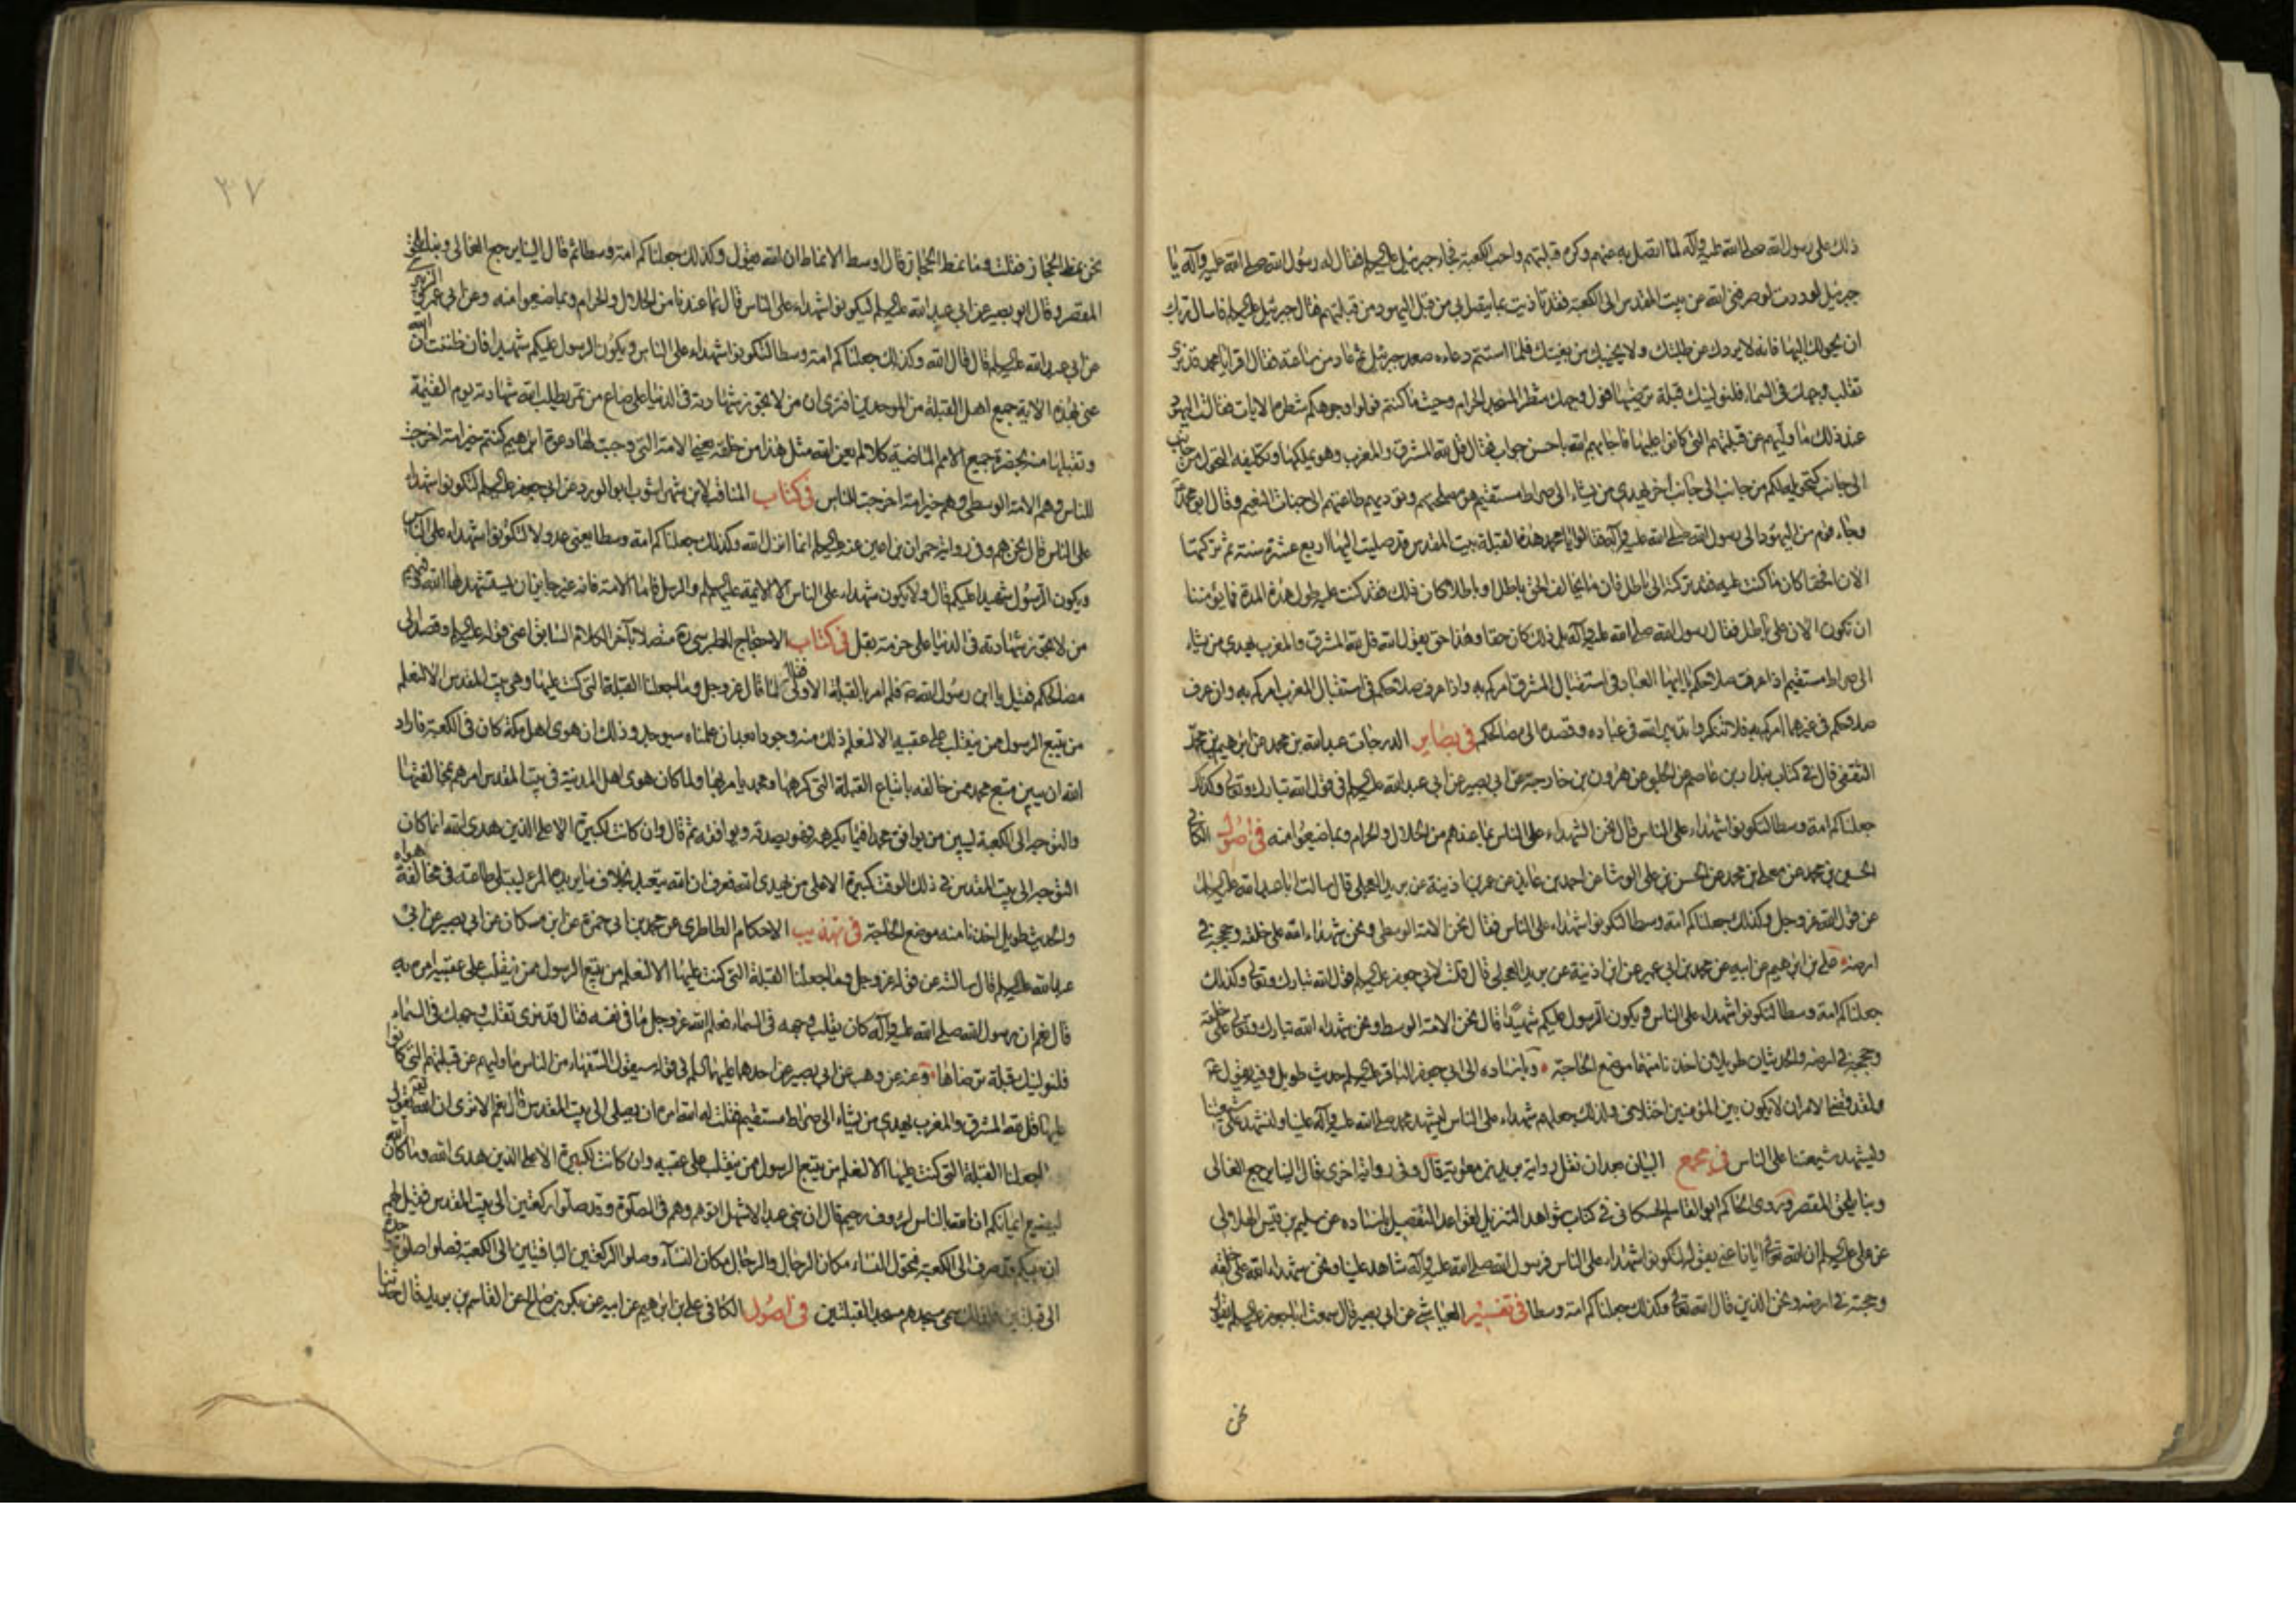 ذلك على رسول الله صلى الله عليه وآله لما اتصل به عنهم وكره قبلتهم واحب الكعبة فجاء جبرئيل عليه السلم فقال له رسول الله صلى الله عليه وآله يا
جبرئيل لوددت لو صرفنى الله عن بيت المقدس الى الكعبة فقد تاذيت بما يتصل بى من قبل اليهود من قبلتهم فقال جبرئيل عليه السلم فاسال ربك
ان يحولك اليها فانه لا يردك عن طلبتك ولا يخيبك من بغيتك فلما استتم دعاءه صعد جبرئيل ثم عاد من ساعته فقال اقرا يا محمد قد نرى
تقلب وجهك فى السماء فلنولينك قبلة ترضيها فول وجهك شطر المسجد الحرام وحيث ما كنتم فولوا وجوهكم شطره الايات فقالت اليهود
عند ذلك ما وليهم عن قبلتهم التى كانوا عليها فاجابهم الله باحسن جواب فقال قل لله المشرق والمغرب وهو يملكهما وتكليفه التحول من جانب
الى جانب كتحويلكم من جانب الى جانب اخر يهدى من يشاء الى صراط مستقيم هو مصلحتهم وتؤديهم طاعتهم الى جنات النعيم وقال ابو محمد
وجاء قوم من اليهود الى رسول الله صلى الله عليه وآله فقالوا يا محمد هذه القبلة بيت المقدس قد صليت اليها اربع عشرة سنة ثم تركتها
الان افحقا كان ما كنت عليه فقد تركته الى باطل فان ما يخالف الحق باطل او باطلا كان ذلك فقد كنت عليه طول هذه المدة فما يؤمننا
ان تكون الان على باطل فقال رسول الله صلى الله عليه وآله بل ذلك كان حقا وهذا حق يقول الله قل لله المشرق والمغرب يهدى من يشاء
الى صراط مستقيم اذا عرف صلاحكم يا ايها العباد فى استقبال المشرق امركم به واذا عرف صلاحكم فى استقبال المغرب امركم به وان عرف
صلاحكم فى غيرهما امركم به فلا تنكروا تدبير الله فى عباده وقصده الى مصالحكم فى بصاير الدرجات عبد الله بن محمد عن ابرهيم بن محمد
الثقفى قال فى كتاب بندار بن عاصم عن الحلبى عن هرون بن خارجة عن ابى بصير عن ابى عبد الله عليه السلم فى قول الله تبارك وتعالى وكذلك
جعلناكم امة وسطا لتكونوا شهداء على الناس قال نحن الشهداء على الناس بما عندهم من الحلال والحرام وبما ضيعوا منه فى اصول الكافى
الحسين بن محمد عن معلى بن محمد عن الحسن بن على الوشا عن احمد بن عايذ عن عمر بن اذينة عن بريد العجلى قال سالت ابا عبد الله عليه السلم
عن قول الله عز وجل وكذلك جعلناكم امة وسطا لتكونوا شهداء على الناس فقال نحن الامة الوسطى ونحن شهداء الله على خلقه وحججه فى
ارضه على بن ابرهيم عن ابيه عن محمد بن ابى عمير عن ابن اذينة عن بريد العجلى قال قلت لابى جعفر عليه السلم قول الله تبارك وتعالى وكذلك
جعلناكم امة وسطا لتكونوا شهداء على الناس ويكون الرسول عليكم شهيدا قال نحن الامة الوسط ونحن شهداء الله تبارك وتعالى على خلقه
وحججه فى ارضه والحديثان طويلان اخذنا منهما موضع الحاجة وباسناده الى ابى جعفر الباقر عليه السلم حديث طويل وفيه يقول
ولقد قضى الامر ان لا يكون بين المؤمنين اختلاف ولذلك جعلهم شهداء على الناس ليشهد محمد صلى الله عليه وآله علينا ولنشهد على شيعتنا
وليشهد شيعتنا على الناس فى مجمع البيان بعد ان نقل رواية بريد بن معوية قال وفى رواية اخرى قال الينا يرجع الغالى
وبنا يلحق المقصر وروى الحاكم ابو القاسم الحسكانى فى كتاب شواهد التنزيل لقواعد التفضيل باسناده عن سليم بن قيس الهلالى
عن على عليه السلم ان الله تعالى ايانا عنى بقوله لتكونوا شهداء على الناس فرسول الله صلى الله عليه وآله شاهد علينا ونحن شهداء الله على خلقه
وحجته فى ارضه ونحن الذين قال الله تعالى وكذلك جعلناكم امة وسطا فى تفسير العياشى عن ابى بصير قال سمعت ابا جعفر عليه السلم يقول
نحن
٣٧
نحن نمط الحجاز فقلت وما نمط الحجاز قال اوسط الانماط ان الله يقول وكذلك جعلناكم امة وسطا ثم قال الينا يرجع الغالى وبنا يلحق
المقصر وقال ابو بصير عن ابى عبد الله عليه السلم لتكونوا شهداء على الناس قال بما عندنا من الحلال والحرام وبما ضيعوا منه وعن ابى عمرو الزبيرى
عن ابى عبد الله عليه السلم قال قال الله وكذلك جعلناكم امة وسطا لتكونوا شهداء على الناس ويكون الرسول عليكم شهيدا فان ظننت ان الله
عنى بهذه الاية جميع اهل القبلة من الموحدين افترى ان من لا يجوز شهادته فى الدنيا على صاع من تمر يطلب الله شهادته يوم القيمة
وتقبلها منه بحضرة جميع الامم الماضية كلا لم يعن الله مثل هذا من خلقه يعنى الامة التى وجبت لها دعوة ابرهيم كنتم خير امة اخرجت
للناس وهم الامة الوسطى وهم خير امة اخرجت للناس فى كتاب المناقب لابن شهر اشوب ابو الورد عن ابى جعفر عليه السلم لتكونوا شهداء
على الناس قال نحن هم وفى رواية حمران بن اعين عنه عليه السلم انما انزل الله وكذلك جعلناكم امة وسطا يعنى عدولا لتكونوا شهداء على الناس
ويكون الرسول شهيدا عليكم قال ولا يكون شهداء على الناس الا الائمة عليهم السلم والرسل فاما الامة فانه غير جايز ان يستشهدها الله وفيهم
من لا تجوز شهادته فى الدنيا على حزمة بقل فى كتاب الاحتجاج للطبرسى ره متصلا بآخر الكلام السابق اعنى قوله عليه السلم وقصده الى
مصالحكم فقيل يا ابن رسول الله فلم امر بالقبلة الاولى فقال لما قال عز وجل وما جعلنا القبلة التى كنت عليها وهى بيت المقدس الا لنعلم
من يتبع الرسول ممن ينقلب على عقبيه الا لنعلم ذلك منه وجودا بعد ان علمناه سيوجد وذلك ان هوى اهل مكة كان فى الكعبة فاراد
الله ان يبين متبع محمد ممن خالفه باتباع القبلة التى كرهها ومحمد يامر بها ولما كان هوى اهل المدينة فى بيت المقدس امرهم بمخالفتها
والتوجه الى الكعبة ليبين من يوافق محمدا فيما يكرهه فهو يصدقه ويوافقه ثم قال وان كانت لكبيرة الا على الذين هدى الله انما كان
التوجه الى بيت المقدس فى ذلك الوقت كبيرة الا على من يهدى الله فعرف ان الله يتعبد بخلاف ما يريده المرء ليبتلى طاعته فى مخالفة هواه
والحديث طويل اخذنا منه موضع الحاجة فى تهذيب الاحكام الطاطرى عن محمد بن ابى حمزة عن ابن مسكان عن ابى بصير عن ابى
عبد الله عليه السلم قال سالته عن قوله عز وجل وما جعلنا القبلة التى كنت عليها الا لنعلم من يتبع الرسول ممن ينقلب على عقبيه امره به
قال نعم ان رسول الله صلى الله عليه وآله كان يقلب وجهه فى السماء فعلم الله عز وجل ما فى نفسه فقال قد نرى تقلب وجهك فى السماء
فلنولينك قبلة ترضاها وعنه عن وهب عن ابى بصير عن احدهما عليهما السلم فى قوله سيقول السفهاء من الناس ما وليهم عن قبلتهم التى كانوا
عليها قل لله المشرق والمغرب يهدى من يشاء الى صراط مستقيم فقلت له الله امره ان يصلى الى بيت المقدس قال نعم الا ترى ان الله تعالى يقول
وما جعلنا القبلة التى كنت عليها الا لنعلم من يتبع الرسول ممن ينقلب على عقبيه وان كانت لكبيرة الا على الذين هدى الله وما كان الله
ليضيع ايمانكم ان الله بالناس لرؤف رحيم قال ان بنى عبد الاشهل اتوهم وهم فى الصلوة وقد صلوا ركعتين الى بيت المقدس فقيل لهم
ان نبيكم قد صرف الى الكعبة فتحول النساء مكان الرجال والرجال مكان النساء وصلوا الركعتين الباقيتين الى الكعبة فصلوا صلوة واحدة
الى قبلتين فلذلك سمى مسجدهم مسجد القبلتين فى اصول الكافى على بن ابرهيم عن ابيه عن بكر بن صالح عن القاسم بن بريد قال حدثنا